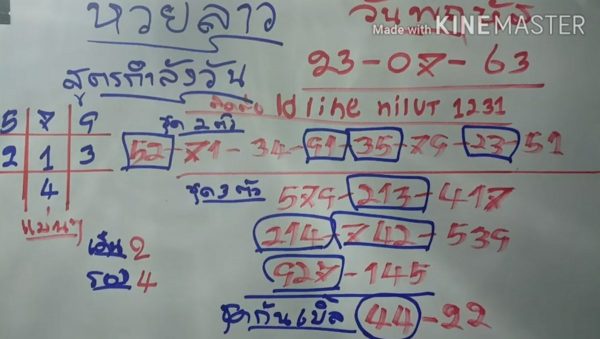 หวยลาว วันพฤหัส
Made with KINEMASTER
สูตรกำลังวัน 23-07-63
ติดต่อ Id line nilUT 1231
5 7 9 ชุด 2 ตัว
2 1 3 52-71-34-91-35-79-23-51
4 ชุด 3 ตัว 579-213-417
แม่นๆ 214-742-539
เน้น 2
รอง 4 927-145
ชุดกันเบิ้ล 44-22